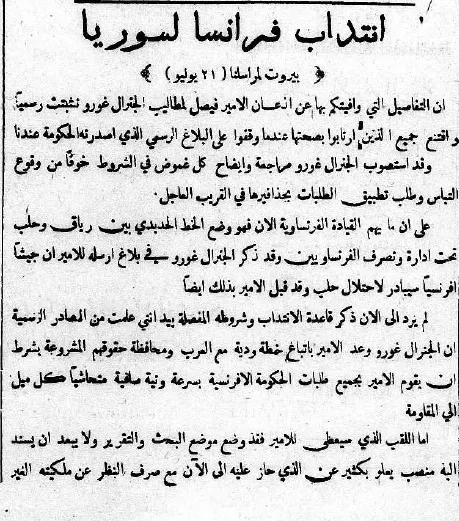 انتداب فرانسا لسوريا
﴿ بيروت لمراسلنا (٢١ يوليو) ﴾
ان التفاصيل التي وافيتكم بها عن اذعان الامير فيصل لمطاليب الجنرال غورو تثبتت رسمياً
واقتنع جميع الذين ارتابوا بصحتها عندما وقفوا على البلاغ الرسمي الذي اصدرته الحكومة عندنا
وقد استصوب الجنرال غورو مراجعة وايضاح كل غموض في الشروط خوفاً من وقوع
التباس وطلب تطبيق الطلبات بحذافيرها في القريب العاجل.
على ان ما يهم القيادة الفرنساوية الان فهو وضع الخط الحديدي بين رياق وحلب
تحت ادارة وتصرف الفرنساويين وقد ذكر الجنرال غورو في بلاغ ارسله للامير ان جيشاً
افرنسياً سيبادر لاحتلال حلب وقد قبل الامير بذلك ايضاً
لم يرد الى الان ذكر قاعدة الانتداب وشروطه المفصلة بيد انني علمت من المصادر الرسمية
ان الجنرال غورو وعد الامير باتباغ خطة ودية مع العرب ومحافظة حقوقهم المشروعة بشرط
ان يقوم الامير بجميع طلبات الحكومة الافرنسية بسرعة ونية صافية متحاشياً كل ميل
الى المقاومة
اما اللقب الذي سيعطى للامير فقد وضع موضع البحث والتقرير ولا يبعد ان يسند
اليه منصب يعلو بكثير عن الذي حاز عليه الى الآن مع صرف النظر عن ملكيته الغير